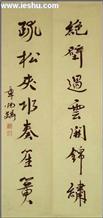 jsw.com.cn
絕壁過雲開錦繡
疏松夾水奏笙簧